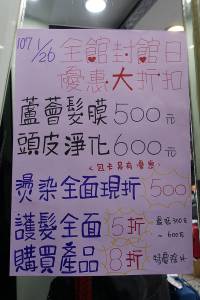 107 1/26 全館封館日
優惠大折扣
蘆薈髮膜500元
頭皮淨化600元
(包卡另有優惠)
燙染全面現折500
護髮全面5折 最低300元~600元
購買產品8折 特賣除外